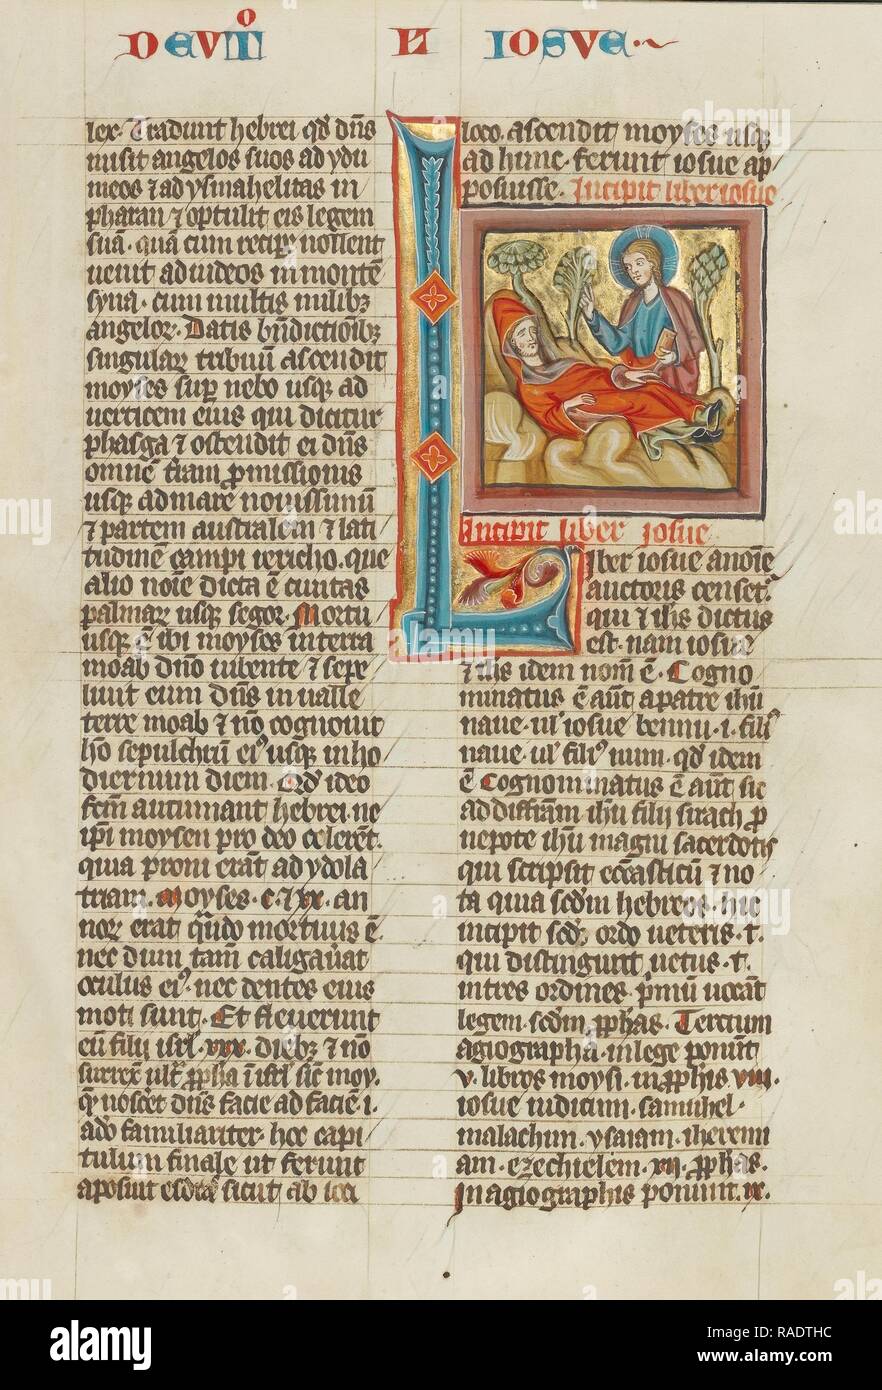 DEVTIIo N IOSVE
lex. Tradunt hebrei qd dns
misit angelos suos ad ydu
meos & ad ysmahelitas in
pharan & optulit eis legem
sua. qua cum recipe nollent
uenit ad iudeos in monte
syna. cum multis milibz
angelor. Datis bndictioibz
singular tribuu ascendit
moyses sup nebo usqz ad
uerticem eius qui dicitur
phasga & ostendit ei dns
omne tiam pmissionis
usqz ad mare nouissimu
& partem australem & lati
tudine campi iericho. que
alio noie dicta e ciuitas
palmar usqz segor. Mortu
usqz e ibi moyses in terra
moab dno iubente & sepe
liuit eum dns in ualle
terre moab & no cognouit
ho sepulchru ei9 usqz in ho
diernum diem. Qd ideo
fcm autumant hebrei. ne
ipi moysen pro deo colerent.
quia proni erat ad ydola
triam. Moyses. c. & xx. an
nor erat qndo mortuus e.
nec dum tam caligauat
oculus ei9. nec dentes eius
moti sunt. Et fleuerunt
eu filii isrl. xxx. diebz & no
surrex ult ppha i isrl sic moy.
que nosset dns facie ad facie. i.
adeo familiariter. hec capi
tulum finale ut ferunt
aposuit esdra sicut ab
loco. ascendit moyses usqz
ad hunc. ferunt iosue ap
posuisse. Incipit liber iosue
Incipit liber iosue
Liber iosue anoie
auctoris censet.
qui & ihs dictus
est. nam iosue
& ihs idem nom e. Cogno
minatus e aut a patre ihu
naue. ul' iosue bennu. i. fili9
naue. ul' fili9 num. qd idem
e Cognominatus e aut sic
ad diffiam ihu filii sirach p
nepote ihu magni sacerdotis
qui scripsit ecciasticu & no
ta quia scdm hebreos. hic
incipit scdz ordo ueteris. t.
qui distingunt uetus. t.
in tres ordines. pmu uocant
legem. scdm pphas. Tercium
agiographa. in lege ponunt
v. libros moysi. in pphis viii.
iosue iudicum. samuhel.
malachim. ysaiam. iheremi
am. ezechielem. xii. pphas.
In agiographis ponunt. ix.
alamy
Image ID: RADTHC
www.alamy.com